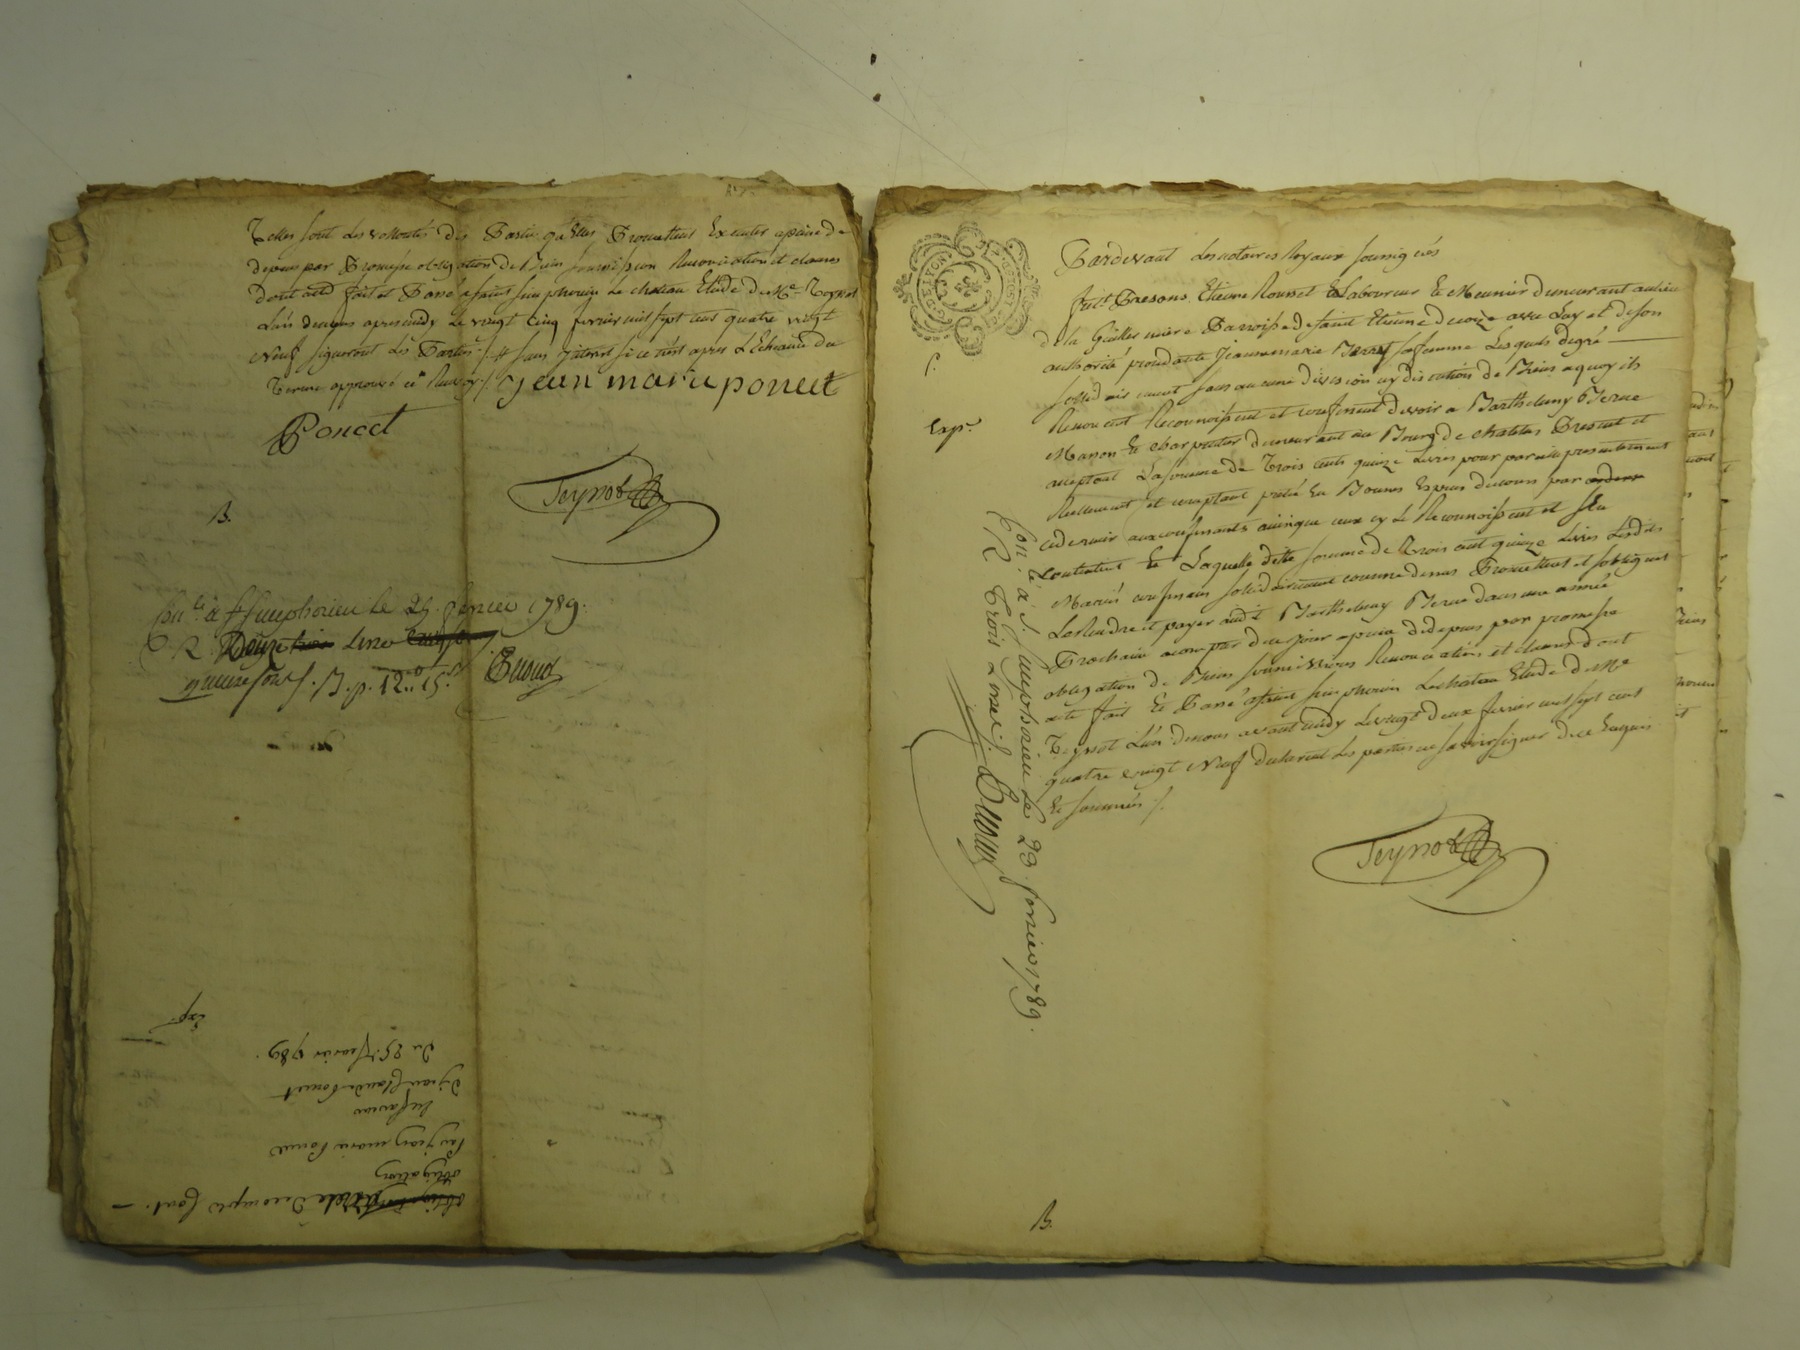 Telles sont les volontés des Parties qu'elles Promettent Executer apeine de
depens par Promesse obligation de Biens soumission Renonciation et clauses
dont acte fait et Passé a saint simphorien Le chateau Etude de Me Teyssot
L'un de nous apres midy Le vingt Cinq fevrier mil sept cent quatre vingt
Neuf signeront les Parties ./. # sans Jnterest si ce n'est apres L'Echeance du
Terme approuvé ce Renvoy ./. jean marie poncet
Poncet
Teyssot
B.
Con.lé à S. Simphorien le 25. fevrier 1789.
R. Douze livres
quinze sous ./. B. p. 12.. 15.s
Exp.
obligation
acte de Decompte sont. —
obligation
par Jean marie Poncet
En faveur
de Jean Claude Poncet
Du 25. fevrier 1789.
GEN DE LYON
Pardevant Les notaires Royaux soussignés
furent Presens Etienne Rousset Laboureur Et Meunier demeurant au lieu
de la Guillermiere Parroisse de saint Etienne avec Luy et de son
authorité procedante Jeanne marie sa femme Lesquels de gré —
solidairement sans aucune division ny discution de Biens a quoy ils
Renoncent Reconnoissent et confessent devoir a Barthelemy
Masson Et charpentier demeurant au Bourg de Present et
acceptant La somme de Trois cents quinze Livres pour pareille presentement
Reellement et comptant prêté En Bonnes Especes de cours par
cedernier aux confessants ainsique ceux cy Le Reconnoissent et s'En
contentent Laquelle dite somme de Trois cent quinze Livres Lesdits
Mariés confessans solidairement comme dessus Promettent et s'obligent
La Rendre et payer audit Barthelemy dans une année
Prochaine a compter de ce jour apeine de depens par promesse
obligation de Biens soumissions Renonciations et clauses dont
acte fait Et Passé a saint simphorien Le chateau Etude de Me
Teyssot L'un de nous avant midy Le vingt deux fevrier mil sept cent
quatre vingt Neuf declarent Les parties ne savoir signer de ce Enquis
Et sommés ./.
Teyssot
Exp.
Con. lé à S. Simphorien Le 23. fevrier 1789.
R. Trois Livres
B.